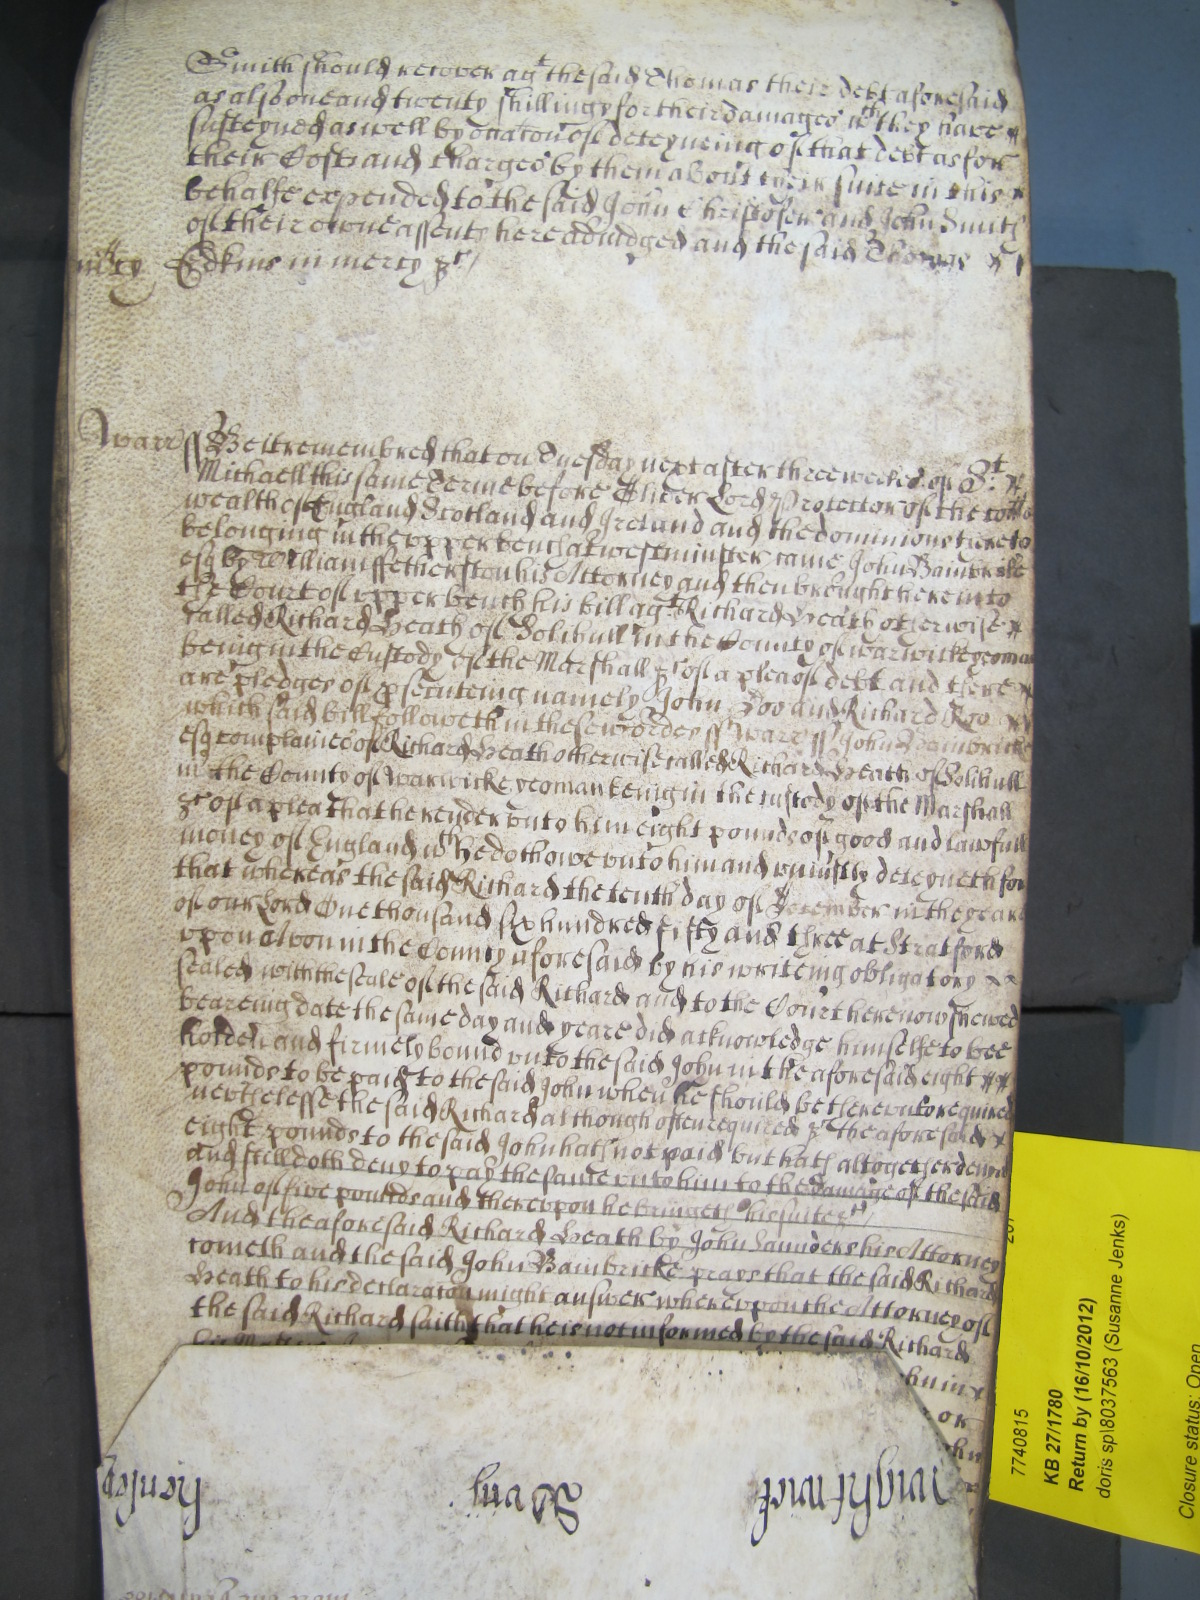 Smith should recover agt the said Thomas their debt aforesaid
as also one and twenty shillings for their damages wch they have
susteyned as well by occacon of deteyneing of that debt as for
their Costs and Charges by them about their suite in this
behalfe expended to the said John Christofer and John Smith
of their owne assents here adiudged and the said Thomas
Edkins in mercy &c
mcy
Warr ss Be it remembred that on Tuesday next after three weekes of St
Michaell this same Terme before Oliver Lord Protector of the Comon
wealth of England Scotland and Ireland and the dominions thereto
belonging in the upper bench at westminster came John Bambricke
esq by William ffetherston his Attorney and then brought here into
the Court of upper bench his bill agt Richard Heath otherwise
called Richard Heath of Solihull in the County of warwicke yeoman
being in the Custody of the Marshall &c of a plea of debt and there
are pledges of psecuteing namely John Doo and Richard Roo
which said bill followeth in these wordes ss Warr ss John Bambricke
esq complaines of Richard Heath otherwise called Richard Heath of Solihull
in the County of Warwicke yeoman being in the custody of the Marshall
&c of a plea that he render unto him eight pounds of good and lawfull
money of England wch he doth owe unto him and uniustly deteyneth for
that whereas the said Richard the tenth day of December in the yeare
of our Lord One thousand six hundred fifty and three at Stratford
upon Avon in the County aforesaid by his writeing obligatory
sealed with the seale of the said Richard and to the Court here now shewed
beareing date the same day and yeare did acknowledge himselfe to bee
holden and firmely bound unto the said John in the aforesaid eight
pounds to be paid to the said John when he should be thereunto required
nevertelesse the said Richard although often required &c the aforesaid
eight pounds to the said John hath not paid but hath altogether denyed
and still doth deny to pay the same unto him to the damage of the said
John of five pounds and thereupon he bringeth his suite &c
And the aforesaid Richard Heath by John Saunders his Attorney
cometh and the said John Bambricke prayes that the said Richard
Heath to his declaracon might answer whereupon the Attorney of
the said Richard saith that he is not informed by the said Richard
or
Wightwick
Henley
7740815
KB 27/1780
Return by (16/10/2012)
doris sp\8037563 (Susanne Jenks)
Closure status: Open